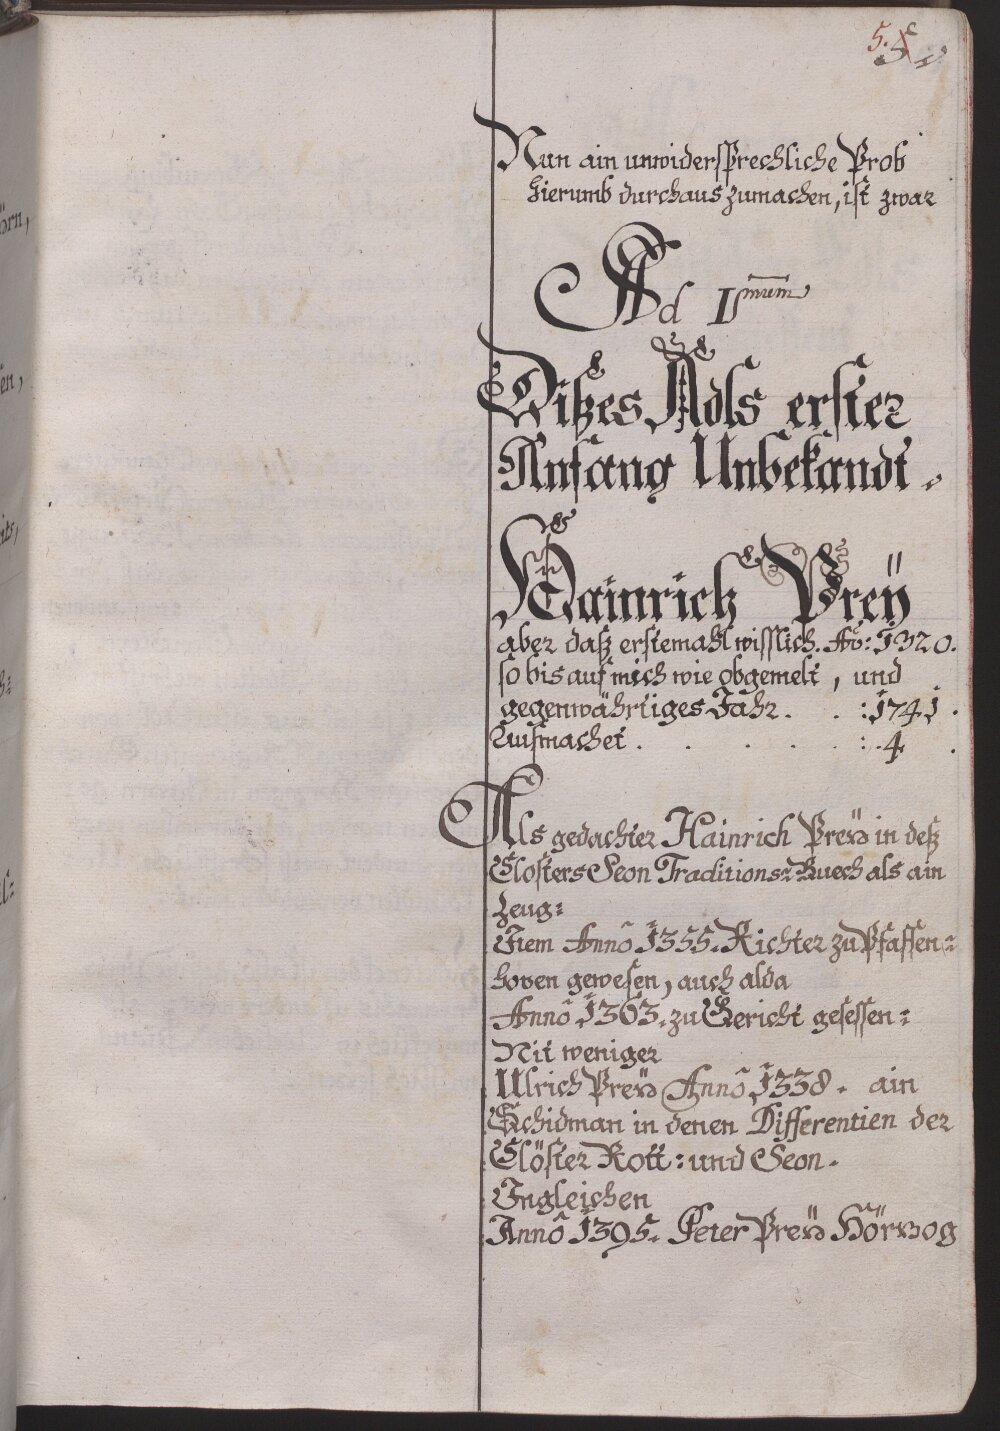 5.
Nun ain unwidersprechliche Prob
hierumb durchaus zumachen, ist zwar
Ad I^mum
Dißes Adls erster
Anfang Unbekandt.
Hainrich Preÿ
aber daß erstemahl wisslich. Aõ: 1320.
so bis auf mich wie obgemelt, und
gegenwährtiges Jahr. . :1741.
Ausmachet . . . . . : 4 .
Als gedachter Hainrich Preÿ in deß
Closters Seon Traditions=Buech als ain
Zeug=
Item Anno 1355. Richter zu Pfaffen=
hoven gewesen, auch alda
Anno 1363. zu Gericht gesessen=
Nit weniger
Ulrich Preÿ Anno 1338. ain
Schidman in denen Differentien der
Clöster Rott: und Seon.
Ingleichen
Anno 1395. Peter Preÿ Hörzog
örn,
en,
its,